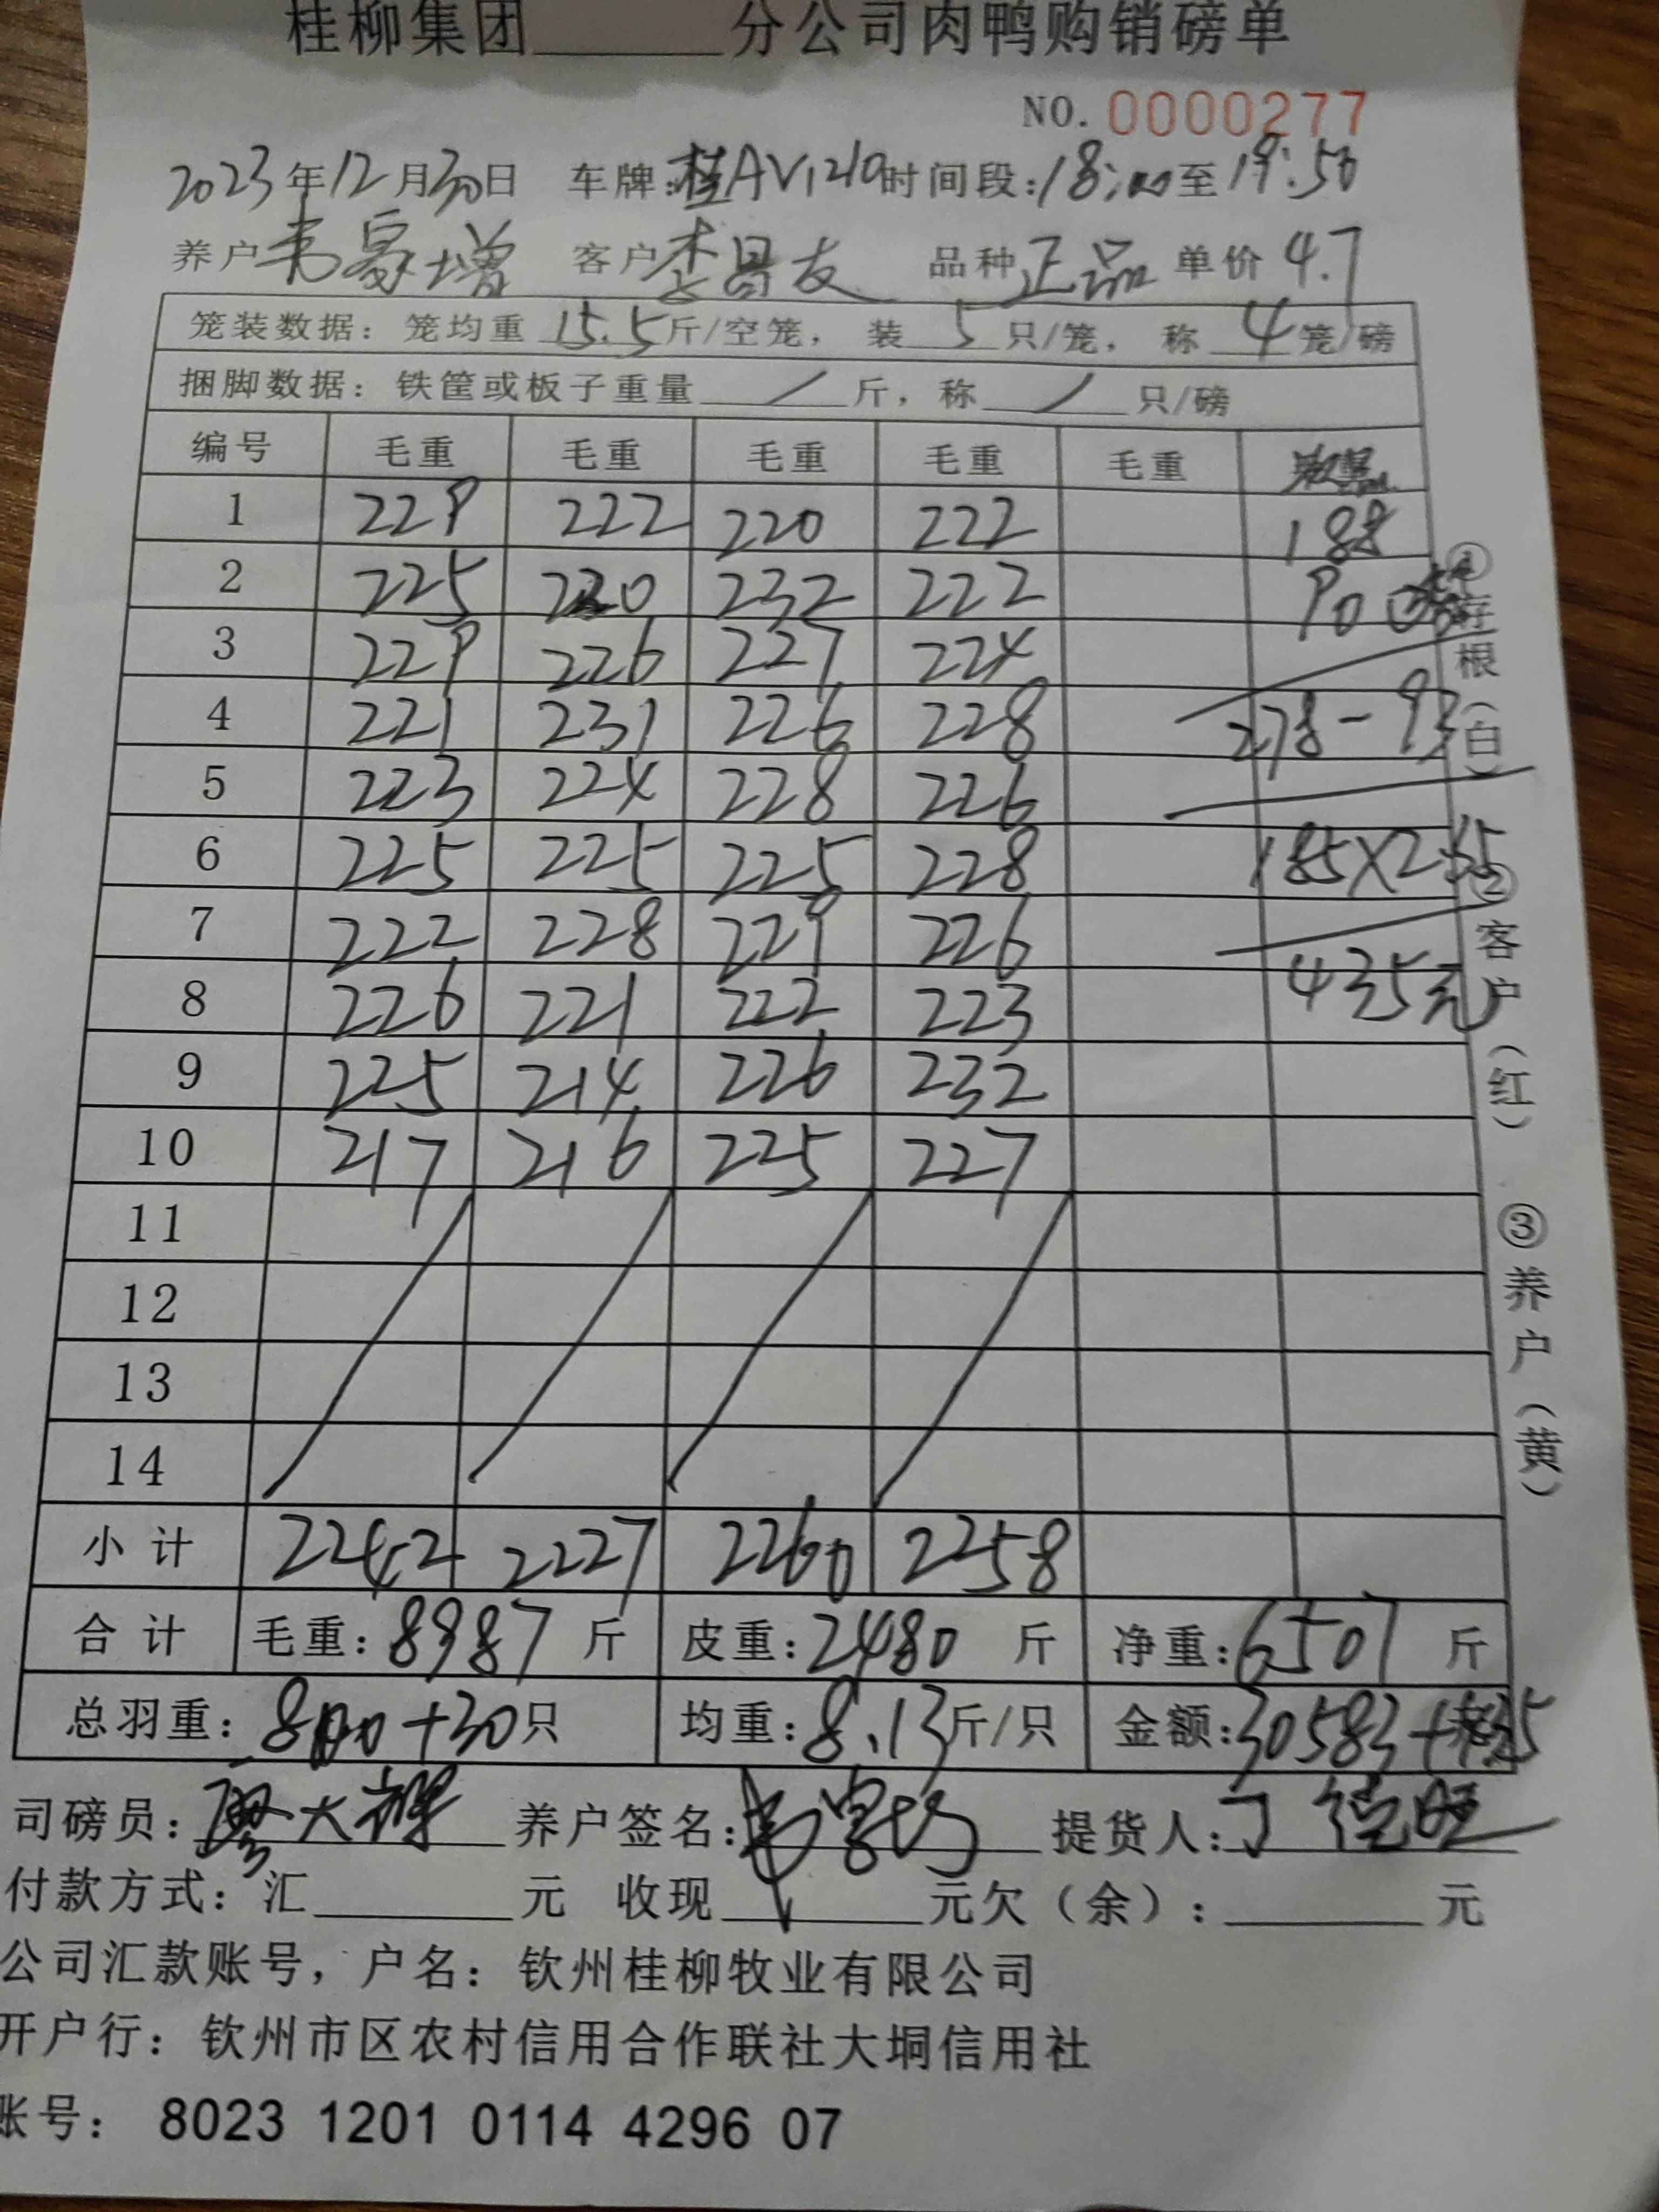 桂柳集团______分公司肉鸭购销磅单
NO. 0000277
2023年12月30日 车牌:桂AV1210 时间段:18:00至19:50
养户 韦家增 客户 李昌友 品种 正品 单价 4.7
笼装数据: 笼均重 15.5 斤/空笼, 装 5 只/笼, 称 4 笼/磅
捆脚数据: 铁筐或板子重量 / 斤, 称 / 只/磅
编号 毛重 毛重 毛重 毛重 毛重
1 229 222 220 222 188
2 225 220 232 222 90
3 229 226 227 224
4 221 231 226 228 278-93
5 223 224 228 226
6 225 225 225 228 185X2.35
7 222 228 229 226
8 226 221 222 223 435元
9 225 214 226 232
10 217 216 225 227
11
12
13
14
小计 2242 2227 2260 2258
合计 毛重: 8987 斤 皮重: 2480 斤 净重: 6507 斤
总羽重: 800+30只 均重: 8.13斤/只 金额: 30583+435
司磅员: 大 养户签名: 提货人:
付款方式: 汇______元 收现______元欠(余): ______元
公司汇款账号, 户名: 钦州桂柳牧业有限公司
开户行: 钦州市区农村信用合作联社大垌信用社
账号: 8023 1201 0114 4296 07
①存根(白) ②客户(红) ③养户(黄)